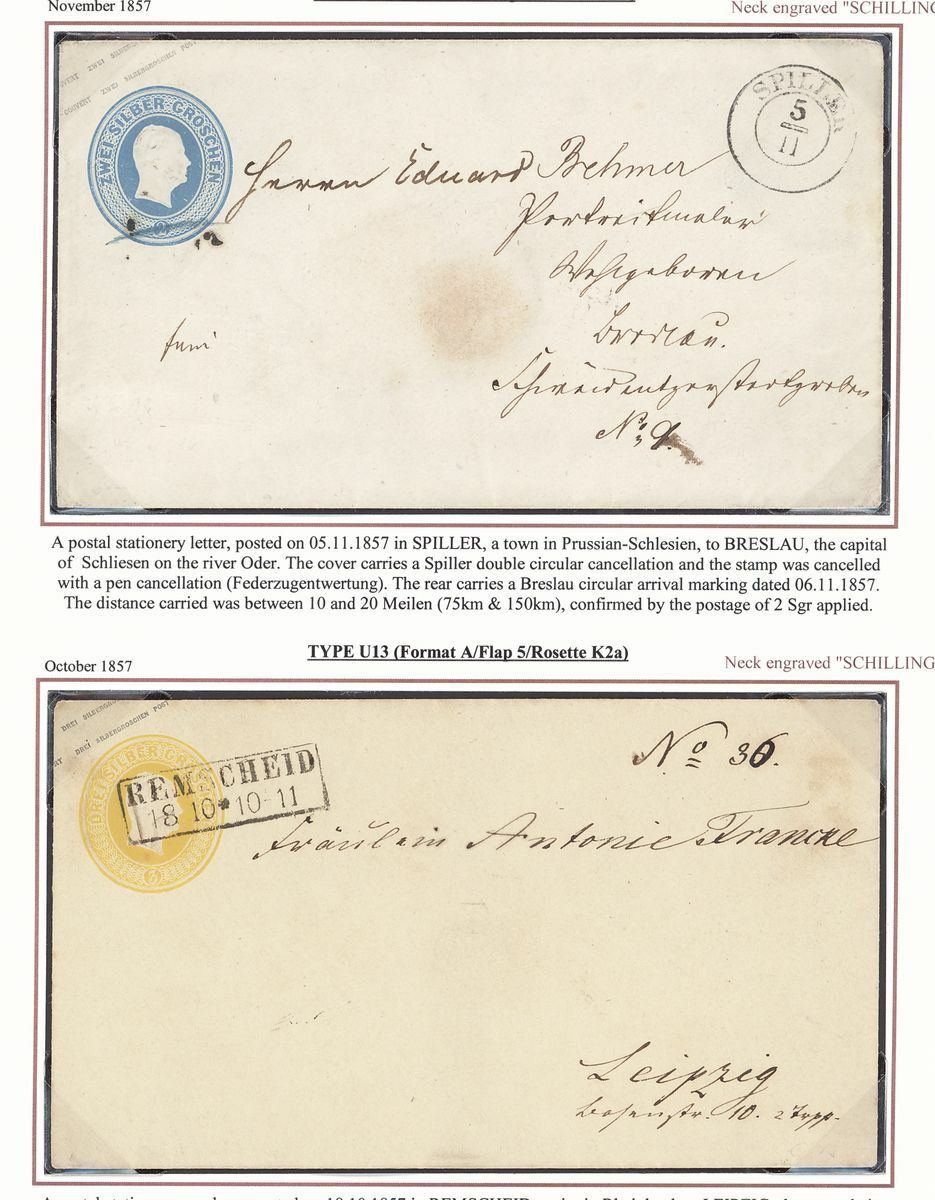 November 1857
Neck engraved "SCHILLING
COUVERT ZWEI SILBERGROSCHEN POST
ZWEI SILBER GROSCHEN
2
SPILLER
5
11
Herrn Eduard Behmer
Portraitmaler
Wohlgeboren
Breslau.
No 9.
A postal stationery letter, posted on 05.11.1857 in SPILLER, a town in Prussian-Schlesien, to BRESLAU, the capital
of Schliesen on the river Oder. The cover carries a Spiller double circular cancellation and the stamp was cancelled
with a pen cancellation (Federzugentwertung). The rear carries a Breslau circular arrival marking dated 06.11.1857.
The distance carried was between 10 and 20 Meilen (75km & 150km), confirmed by the postage of 2 Sgr applied.
TYPE U13 (Format A/Flap 5/Rosette K2a)
October 1857
Neck engraved "SCHILLING
DREI SILBERGR
RT DREI SILBERGROSCHEN POST
DREI SILBER GRO
3
REMSCHEID
18 10 * 10-11
No 36.
Fräulein Antonie Francke
Leipzig
Bosenstr. 10. 2 Trpp.